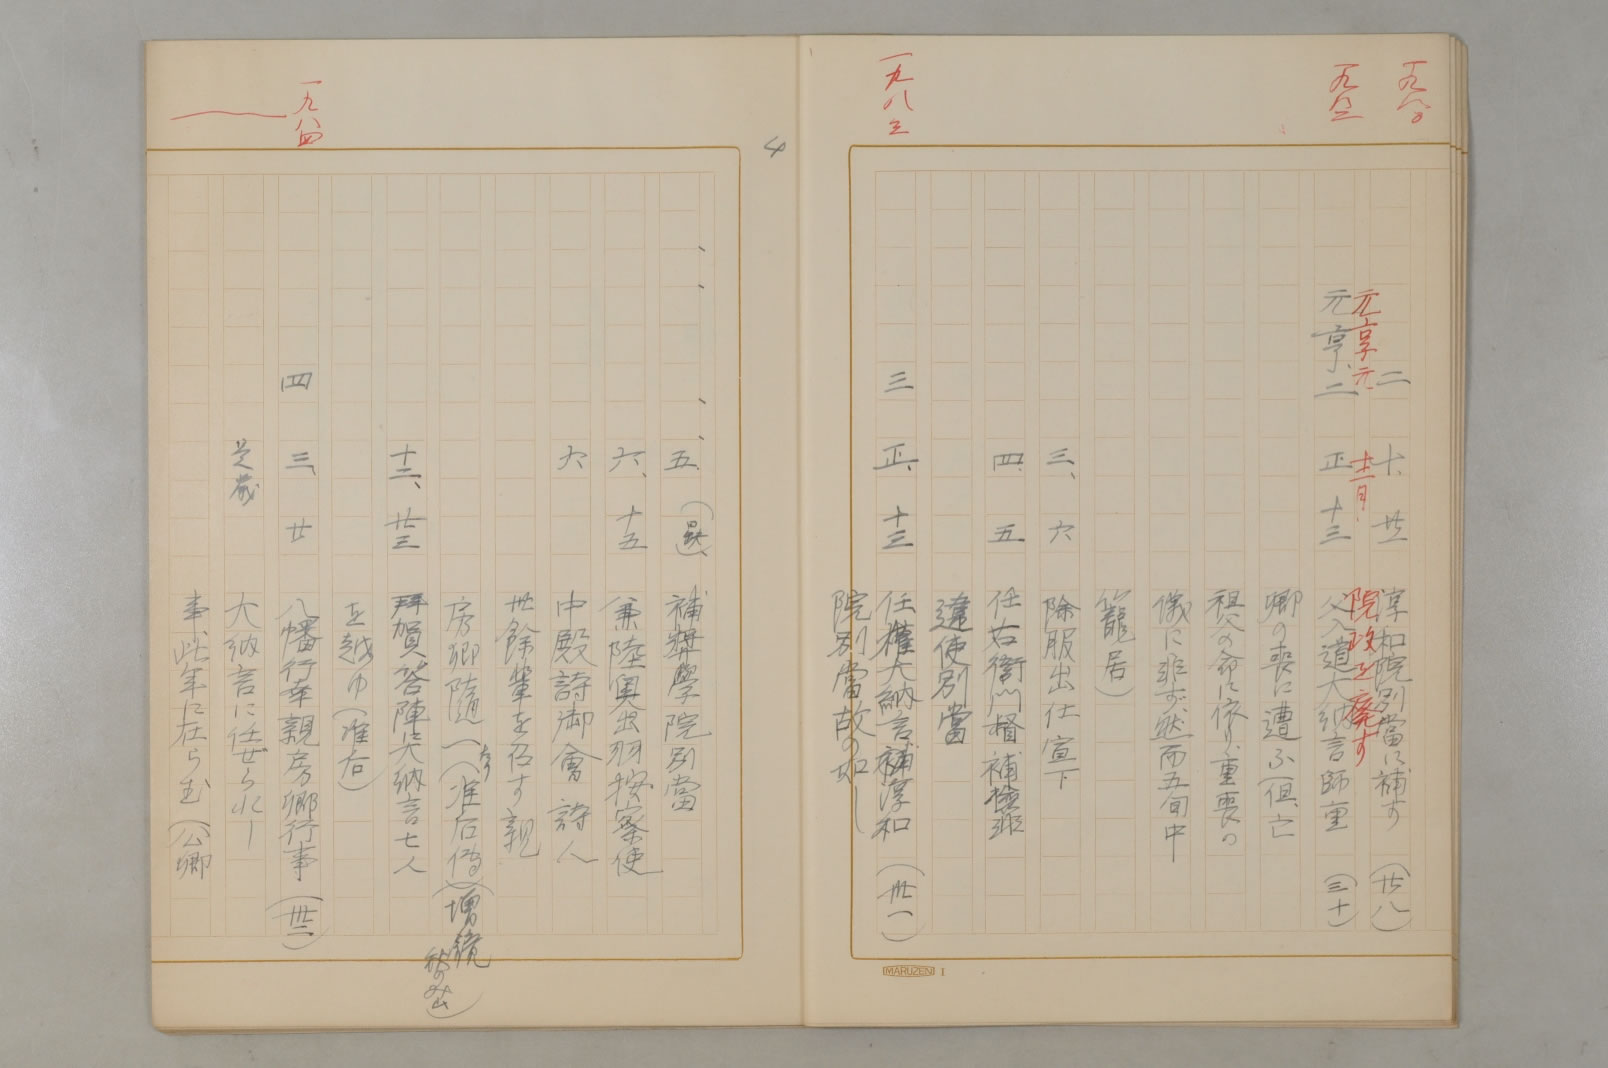 一九八〇
二 十、廿一 淳和院別當に補す (廿八)
元亨元 十二月 院政を廃す
一九八二
元亨、二 正 十三 父入道大納言師重 (三十)
卿の喪に遭ふ(但、亡
祖父の命に依り重喪の
儀に非ず、然而五旬中
籠居)
三、 六 除服出仕宣下
四 五 任右衛門督補檢非
違使別當
一九八三
三 正、 十三 任權大納言補淳和 (卅一)
院別當故の如し
4
五 補奬學院別當
六、 十五 兼陸奥出羽按察使
六 中殿詩御會 詩人
卅餘輩を召す 親
房卿隨一(准后傳)(増鏡
秋のみ山)
十二、 廿三 拜賀着陣大納言七人
を越ゆ(准后)
一九八四
四 三、 廿 八幡行幸親房卿行事 (卅二)
是歳 大納言に任ぜられし
事此年に在らむ(公卿
MARUZEN I